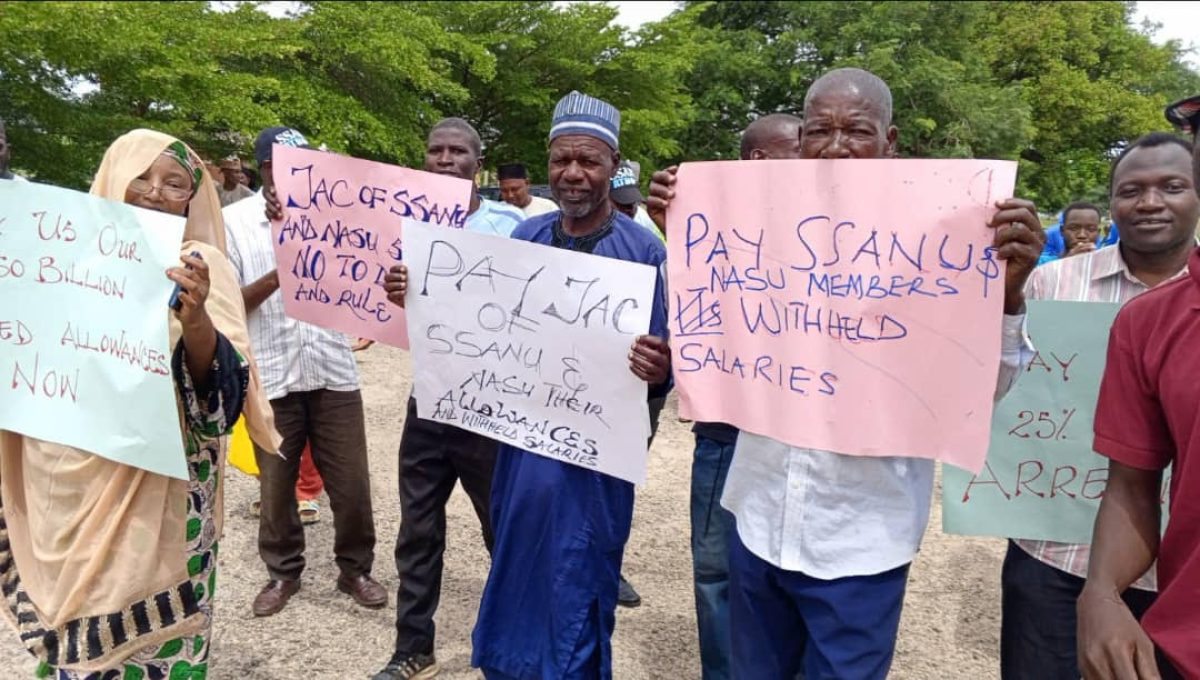 Us Our
50 Billion
Allowances
Now
JAC OF SSANU
AND NASU S
NO TO D
AND RULE
PAY JAC
OF
SSANU &
NASU THEIR
ALLOWANCES
AND WITHHELD SALARIES
PAY SSANU &
NASU MEMBERS
WITHHELD
SALARIES
PAY
25%
ARRE